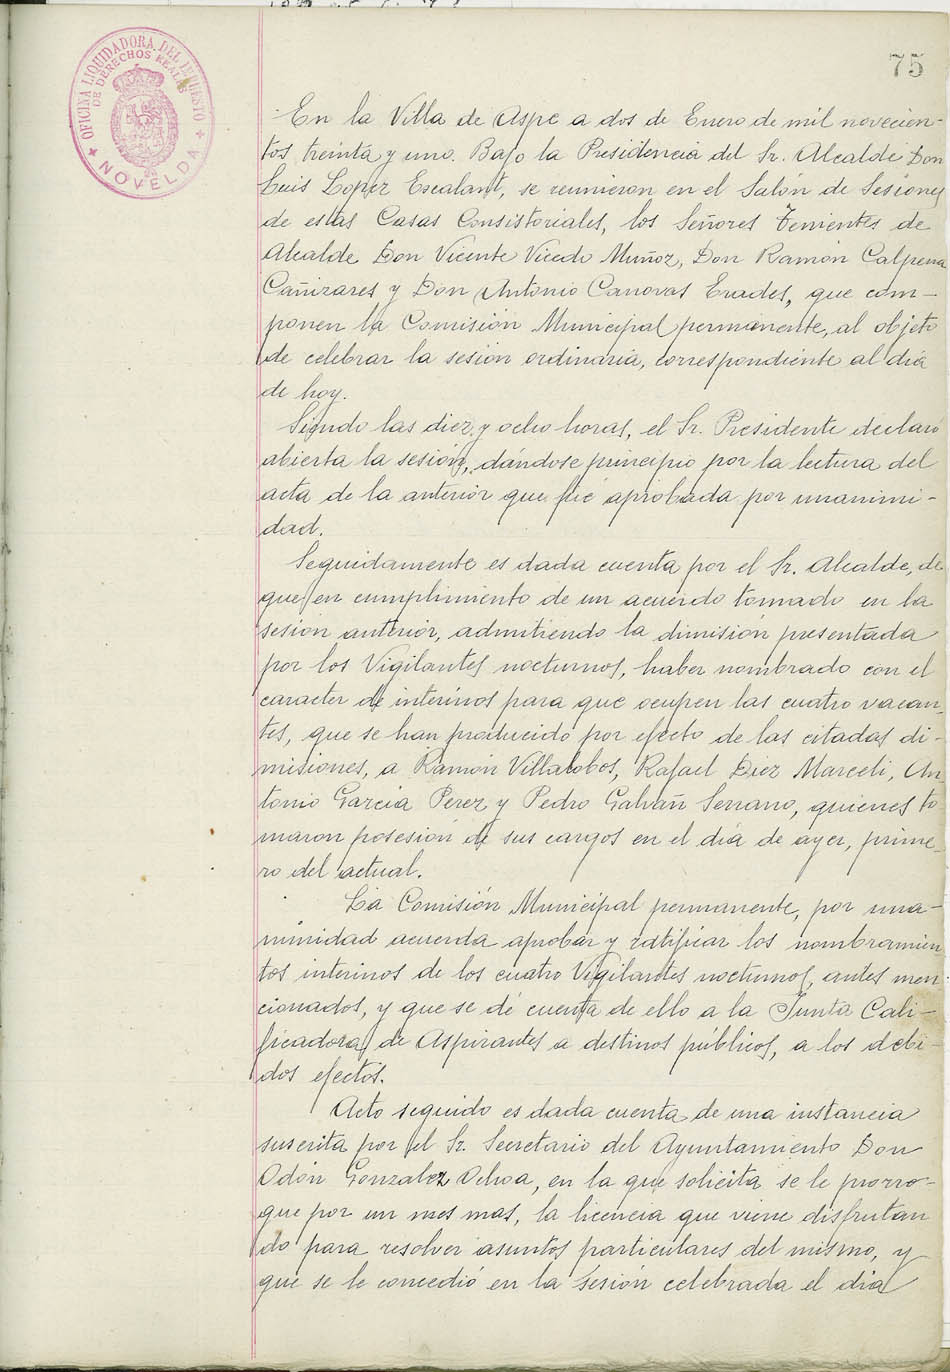 75
OFICINA LIQUIDADORA DEL IMPUESTO
DE DERECHOS REALES
NOVELDA
En la Villa de Aspe a dos de Enero de mil novecien-
tos treinta y uno. Bajo la Presidencia del Sr. Alcalde Don
Luis Lopez Escalant, se reunieron en el Salón de Sesiones
de estas Casas Consistoriales, los Señores Tenientes de
Alcalde Don Vicente Vicedo Muñoz, Don Ramón Calpena
Cañizares y Don Antonio Canovas Erades, que com-
ponen la Comisión Municipal permanente, al objeto
de celebrar la sesión ordinaria, correspondiente al día
de hoy.
Siendo las diez y ocho horas, el Sr. Presidente declaró
abierta la sesión, dándose principio por la lectura del
acta de la anterior que fué aprobada por unanimi-
dad.
Seguidamente es dada cuenta por el Sr. Alcalde, de
que en cumplimiento de un acuerdo tomado en la
sesión anterior, admitiendo la dimisión presentada
por los Vigilantes nocturnos, haber nombrado con el
caracter de interinos para que ocupen las cuatro vacan-
tes, que se han producido por efecto de las citadas di-
misiones, a Ramón Villalobos, Rafael Diez Marceli, An-
tonio García Perez y Pedro Galvañ Serrano, quienes to
maron posesión de sus cargos en el día de ayer, prime-
ro del actual.
La Comisión Municipal permanente, por una-
nimidad acuerda aprobar y ratificar los nombramien
tos interinos de los cuatro Vigilantes nocturnos, antes men-
cionados, y que se dé cuenta de ello a la Junta Cali-
ficadora de Aspirantes a destinos públicos, a los debi-
dos efectos.
Acto seguido es dada cuenta de una instancia
suscrita por el Sr. Secretario del Ayuntamiento Don
Odón Gonzalez Ochoa, en la que solicita se le prorro-
gue por un mes mas, la licencia que viene disfrutan
do para resolver asuntos particulares del mismo, y
que se le concedió en la sesión celebrada el día